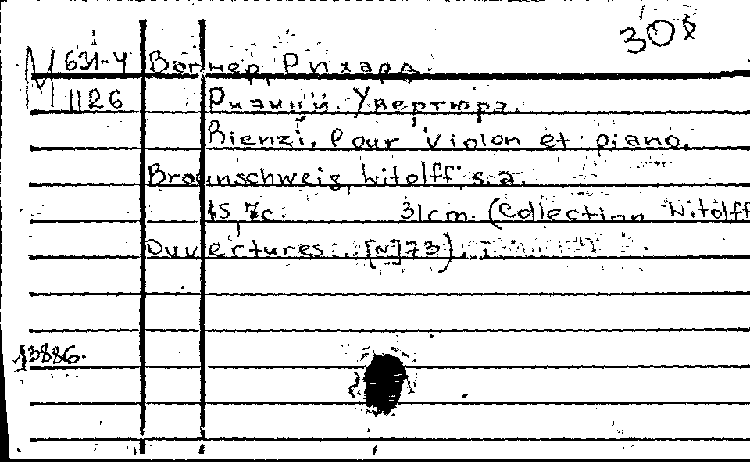 308
М 631-4 Вагнер, Рихард.
1126 Риэнци. Увертюра.
Rienzi. Pour violon et piano.
Braunschweig, Litolff, s.a.
15, 7c. 31cm. (Collection Litolff
Ouvertures. [N]73).
13886.